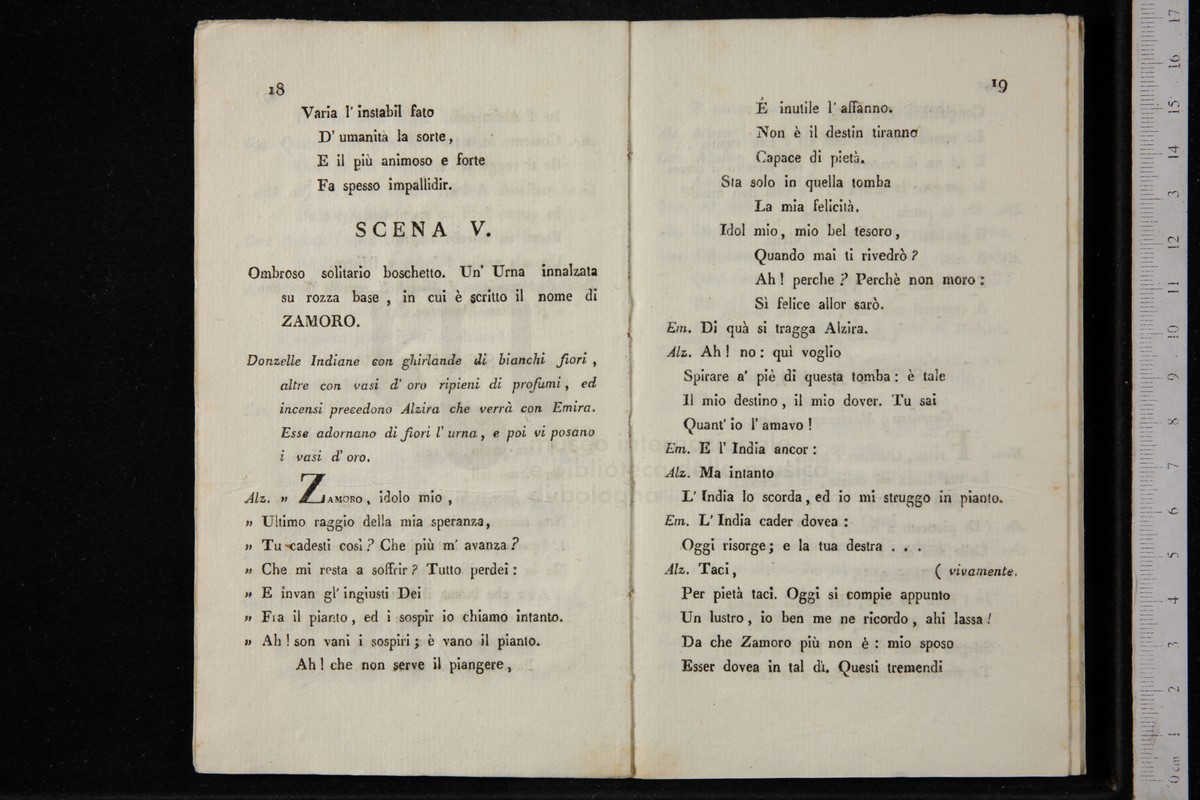 18
Varia l' instabil fato
D' umanità la sorte,
E il più animoso e forte
Fa spesso impallidir.
SCENA V.
Ombroso solitario boschetto. Un' Urna innalzata
su rozza base , in cui è scritto il nome di
ZAMORO.
Donzelle Indiane con ghirlande di bianchi fiori ,
altre con vasi d' oro ripieni di profumi , ed
incensi precedono Alzira che verrà con Emira.
Esse adornano di fiori l' urna , e poi vi posano
i vasi d' oro.
Alz. » ZAMORO , idolo mio ,
» Ultimo raggio della mia speranza,
» Tu cadesti così ? Che più m' avanza ?
» Che mi resta a soffrir ? Tutto perdei :
» E invan gl' ingiusti Dei
» Fra il pianto , ed i sospir io chiamo intanto.
» Ah ! son vani i sospiri ; è vano il pianto.
Ah ! che non serve il piangere ,
19
É inutile l' affanno.
Non è il destin tiranno
Capace di pietà.
Sta solo in quella tomba
La mia felicità.
Idol mio, mio bel tesoro,
Quando mai ti rivedrò ?
Ah ! perche ? Perchè non moro :
Sì felice allor sarò.
Em. Di quà si tragga Alzira.
Alz. Ah ! no : quì voglio
Spirare a' piè di questa tomba : è tale
Il mio destino , il mio dover. Tu sai
Quant' io l' amavo !
Em. E l' India ancor :
Alz. Ma intanto
L' India lo scorda , ed io mi struggo in pianto.
Em. L' India cader dovea :
Oggi risorge ; e la tua destra . . .
Alz. Taci, ( vivamente.
Per pietà taci. Oggi si compie appunto
Un lustro , io ben me ne ricordo , ahi lassa !
Da che Zamoro più non è : mio sposo
Esser dovea in tal dì. Questi tremendi
museo internazionale
e biblioteca della musica
di bologna
0 cm 1 2 3 4 5 6 7 8 9 10 11 12 13 14 15 16 17